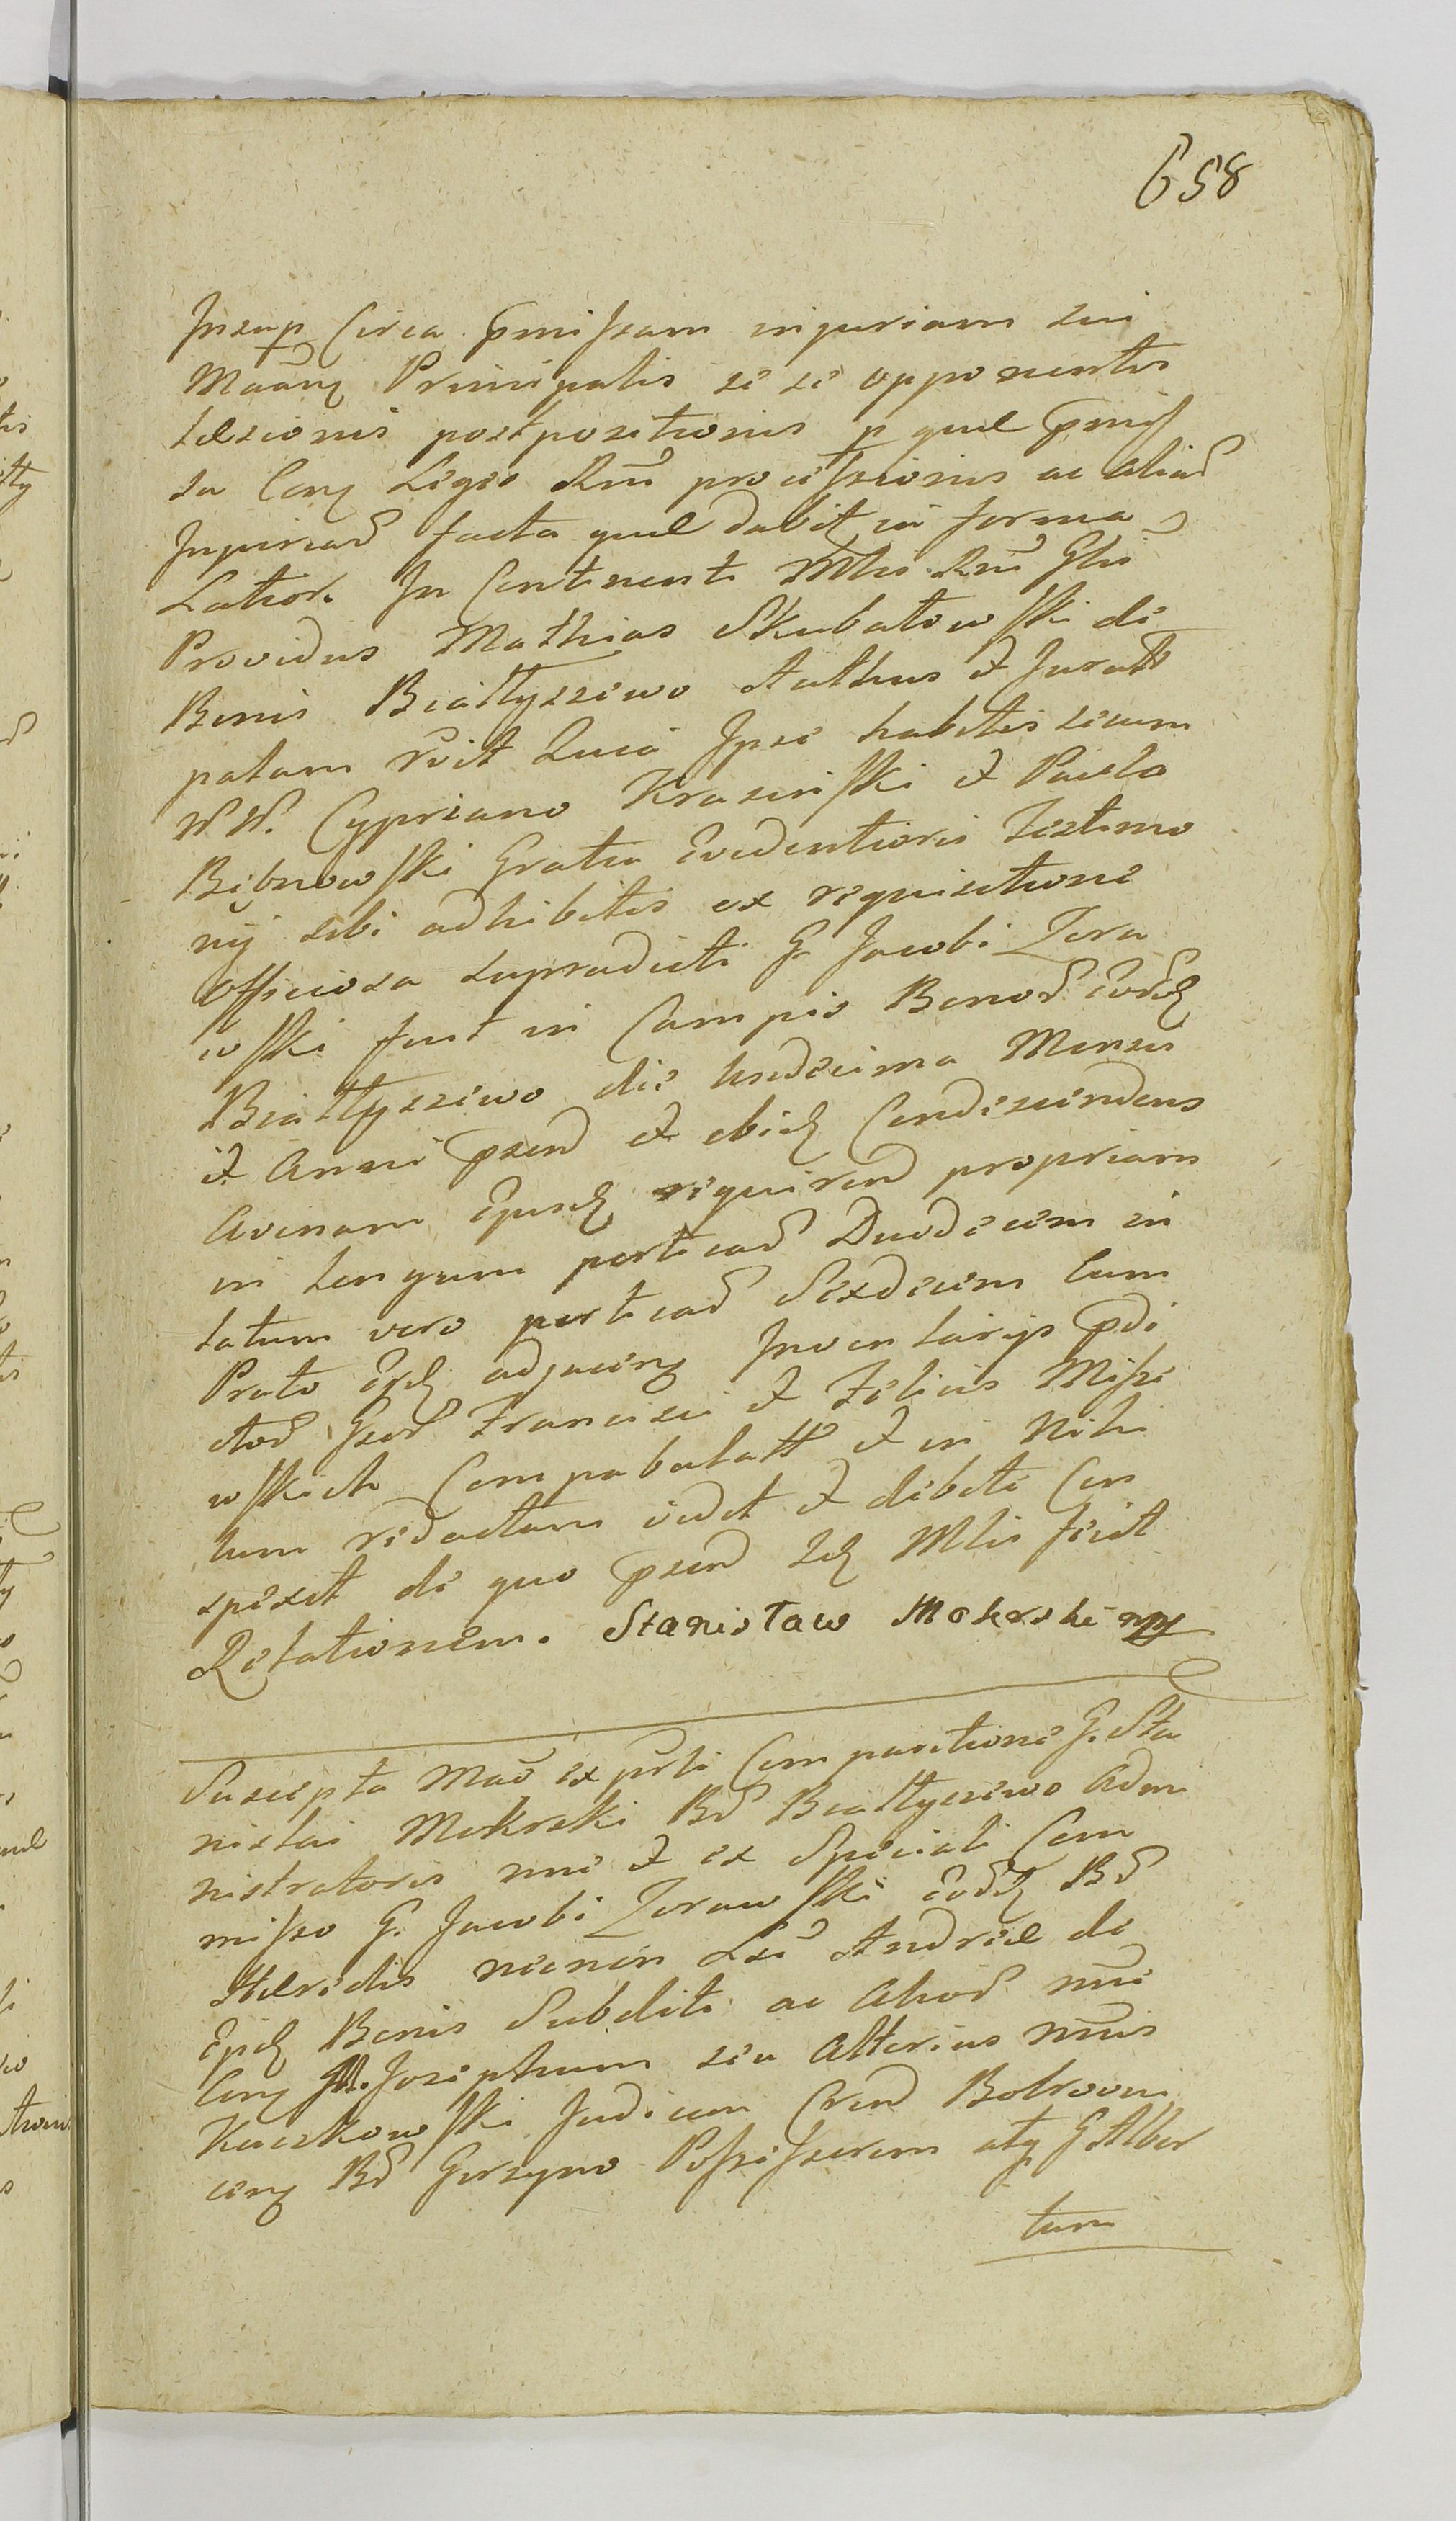 658
Insup Circa pmissam injuriam sui
Maãnq Principalis se se opponentis
læsionis postpositionis p quæ pmis
sa Conq Leges Rni processionis ac aliad
Injuriad facta quæ dabit in forma
Latior. In Continenti Mtis Rni Glis
Providus Mathias Skubatowski de
Bonis Białłyszewo Authus et Juratt
palam rcit Quia Ipse habitis secum
N.N. Cypriano Krasinski et Paulo
Bębnowski Gratia Evidentioris Testimo
nÿ sibi adhibitis ex requisitione
officiosa supradicti G Jacobi Zora
wski fuit in Campis Bonod eord
Białłyszewo die Undecima Mensis
et Anni psend et ibid Condescendens
Avenam Ejusd requirend propriam
in Longum perticad Duodecim in
latum vero perticad Sexdecim Cum
Prato Epd adjacenq Inventarijs pdi
ctod Gsod Francisci et Felicis Missi
wskich Compabulatt et in Nihi
lum redactam videt et debite Con
spexit de quo psend Id Mtis fecit
Relationem. Stanisław Mokrski mp
Suscepta Mad ex psti Comparitione G. Sta
nislai Mokrski Bd Białłyszewo Admi
nistratoris nne et ex Speciali Com
misso G. Jacobi Zorawski eord Bd
Hæredis necnon Lsi Andreæ de
Epd Bonis Subditi ac Aliod nne
Conq M. Josephum seu Alterius nnis
Kuczkowski Judicem Crend Bobrovni
cenq Bd Gorzyno Possessorem atq G Alber
tum